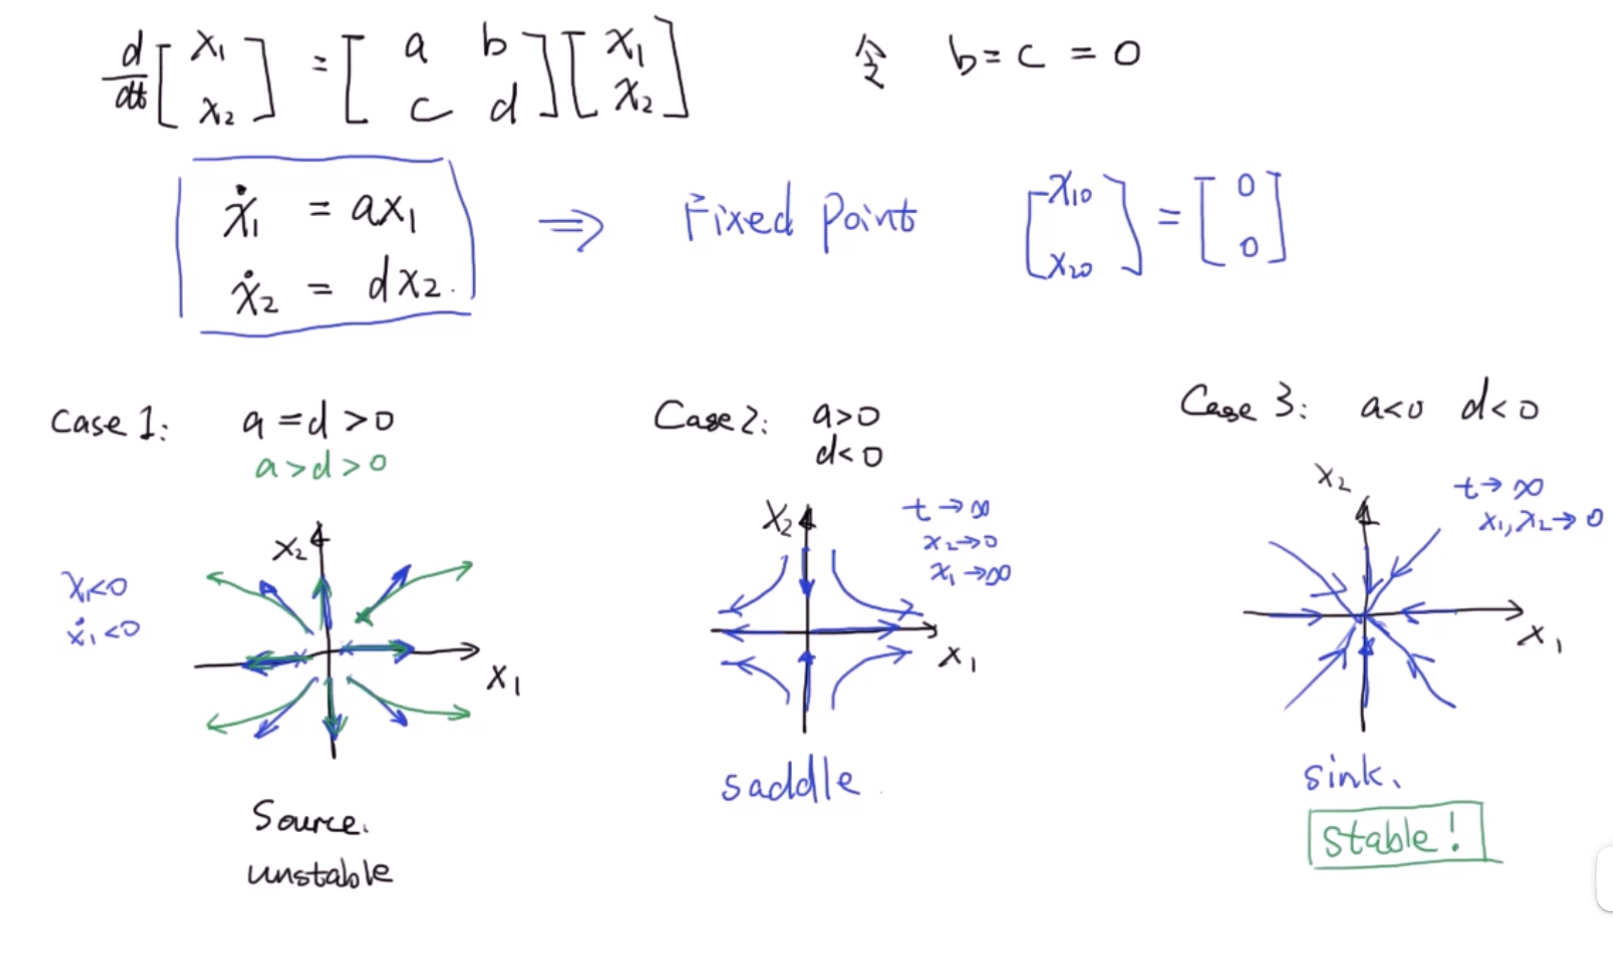 d/dt [x₁ x₂] = [a b c d] [x₁ x₂]
令 b = c = 0
ẋ₁ = ax₁
ẋ₂ = dx₂.
⇒ Fixed Point [x₁₀ x₂₀] = [0 0]
Case 1: a = d > 0
a > d > 0
x₂
x₁<0
ẋ₁<0
x₁
Source.
unstable
Case 2: a>0
d<0
x₂
t→∞
x₂→0
x₁→∞
x₁
saddle
Case 3: a<0 d<0
x₂
t→∞
x₁, x₂→0
x₁
sink.
stable!